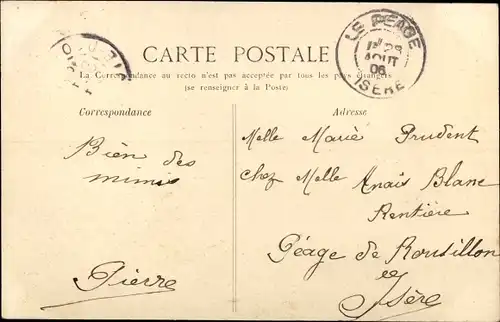 CARTE POSTALE
La Correspondance au recto n'est pas acceptée par tous les pays étrangers
(se renseigner à la Poste)
Correspondance
Adresse
LE PEAGE
28
AOUT
06
ISERE
Bien des
mimis
Pierre
Melle Marie Prudent
chez Melle Anaïs Blanc
Rentière
Péage de Rousillon
Isère